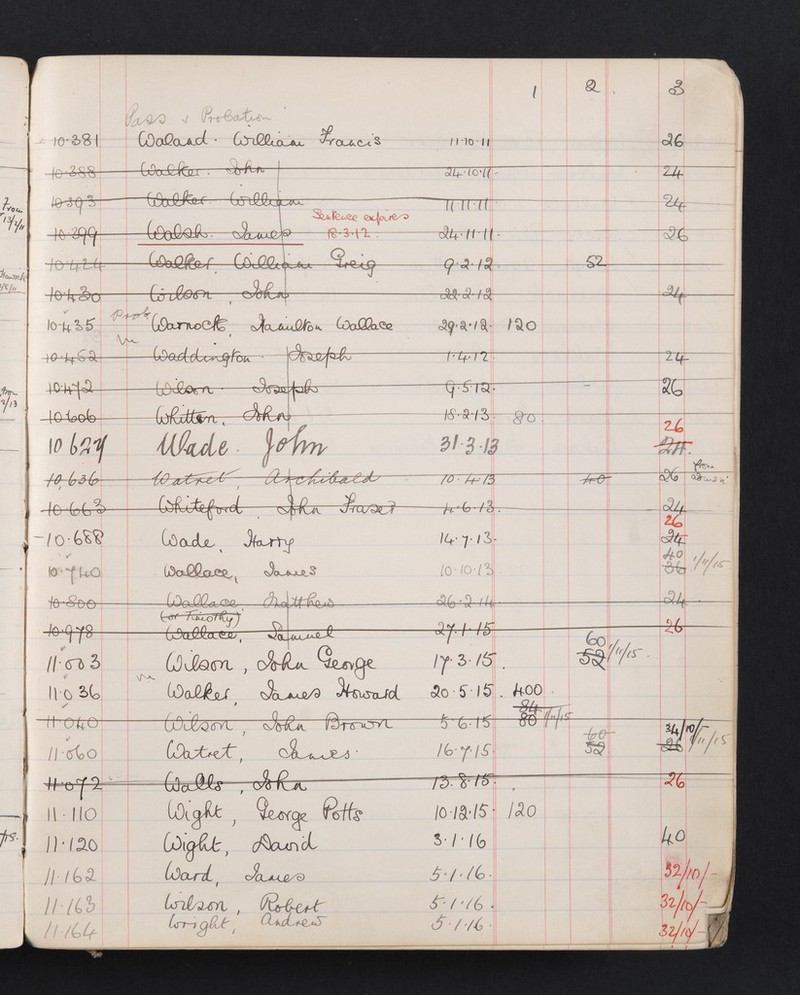 1 2 3
Pass & Probation
10·381 Waland · William Francis 11·10·11 26
10·388 Walker · John 24·10·11 · 24
10393 Walker · William 11·11·11 24
Sentence expires
10·399 Walsh · James 18·3·12 · 24·11·11 · 26
10·424 Walker, William Greig 9·2·12 · 52
10·430 Wilson, John 22·2·12 24
Prob
10·435 Warnock, Hamilton Wallace 29·2·12 · 120
10·462 Waddington · Joseph 1·4·12 24
10·472 Wilson · Joseph 9·5·12 · – 26
10·606 Whitten, John 18·2·13 · 80 ·
26
10 627 Wade · John 31·3·13 24 ·
from
10,636 Watret, Archibald 10·4·13 40 26
10·663 Whiteford, John Fraser 4·6·13 · 24
26
10·688 Wade, Harry 14·7·13 · 24
40
10·740 Wallace, James 10·10·13 36 1/11/15
10·800 Wallace, Matthew 26·2·14 24
(or Timothy)
10·978 Wallace, Samuel 27·1·15 26
60
11·003 Wilson, John George 17·3·15 · 52 1/11/15 ·
11·036 Walker, James Howard 20·5·15 · 400
84
11·040 Wilson, John Brown 5·6·15 80 1/11/15
60 34/10/-
11·060 Watret, James · 16·7·15 · 52 26 1/11/15
11·072 Walls, John 13·8·15 · 26
11·110 Wight, George Potts 10·12·15 · 120
11·120 Wight, David 3·1·16 40
11·162 Ward, James 5·1·16 · 32/10/-
11·163 Wilson, Robert 5·1·16 · 32/10/-
11·164 Wright, Andrew 5·1·16 · 32/10/-